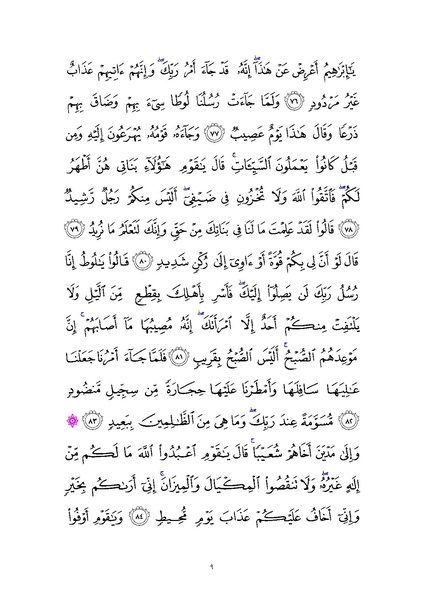 يَٰٓإِبْرَٰهِيمُ أَعْرِضْ عَنْ هَٰذَآ ۖ إِنَّهُۥ قَدْ جَآءَ أَمْرُ رَبِّكَ ۖ وَإِنَّهُمْ ءَاتِيهِمْ عَذَابٌ
غَيْرُ مَرْدُودٍ ۝٧٦ وَلَمَّا جَآءَتْ رُسُلُنَا لُوطًا سِىٓءَ بِهِمْ وَضَاقَ بِهِمْ
ذَرْعًا وَقَالَ هَٰذَا يَوْمٌ عَصِيبٌ ۝٧٧ وَجَآءَهُۥ قَوْمُهُۥ يُهْرَعُونَ إِلَيْهِ وَمِن
قَبْلُ كَانُوا۟ يَعْمَلُونَ ٱلسَّيِّـَٔاتِ ۚ قَالَ يَٰقَوْمِ هَٰٓؤُلَآءِ بَنَاتِى هُنَّ أَطْهَرُ
لَكُمْ ۖ فَٱتَّقُوا۟ ٱللَّهَ وَلَا تُخْزُونِ فِى ضَيْفِىٓ ۖ أَلَيْسَ مِنكُمْ رَجُلٌ رَّشِيدٌ
۝٧٨ قَالُوا۟ لَقَدْ عَلِمْتَ مَا لَنَا فِى بَنَاتِكَ مِنْ حَقٍّ وَإِنَّكَ لَتَعْلَمُ مَا نُرِيدُ ۝٧٩
قَالَ لَوْ أَنَّ لِى بِكُمْ قُوَّةً أَوْ ءَاوِىٓ إِلَىٰ رُكْنٍ شَدِيدٍ ۝٨٠ قَالُوا۟ يَٰلُوطُ إِنَّا
رُسُلُ رَبِّكَ لَن يَصِلُوٓا۟ إِلَيْكَ ۖ فَأَسْرِ بِأَهْلِكَ بِقِطْعٍ مِّنَ ٱلَّيْلِ وَلَا
يَلْتَفِتْ مِنكُمْ أَحَدٌ إِلَّا ٱمْرَأَتَكَ ۖ إِنَّهُۥ مُصِيبُهَا مَآ أَصَابَهُمْ ۚ إِنَّ
مَوْعِدَهُمُ ٱلصُّبْحُ ۚ أَلَيْسَ ٱلصُّبْحُ بِقَرِيبٍ ۝٨١ فَلَمَّا جَآءَ أَمْرُنَا جَعَلْنَا
عَٰلِيَهَا سَافِلَهَا وَأَمْطَرْنَا عَلَيْهَا حِجَارَةً مِّن سِجِّيلٍ مَّنضُودٍ
۝٨٢ مُّسَوَّمَةً عِندَ رَبِّكَ ۖ وَمَا هِىَ مِنَ ٱلظَّٰلِمِينَ بِبَعِيدٍ ۝٨٣ ۞
وَإِلَىٰ مَدْيَنَ أَخَاهُمْ شُعَيْبًا ۚ قَالَ يَٰقَوْمِ ٱعْبُدُوا۟ ٱللَّهَ مَا لَكُم مِّنْ
إِلَٰهٍ غَيْرُهُۥ ۖ وَلَا تَنقُصُوا۟ ٱلْمِكْيَالَ وَٱلْمِيزَانَ ۚ إِنِّىٓ أَرَىٰكُم بِخَيْرٍ
وَإِنِّىٓ أَخَافُ عَلَيْكُمْ عَذَابَ يَوْمٍ مُّحِيطٍ ۝٨٤ وَيَٰقَوْمِ أَوْفُوا۟
٩